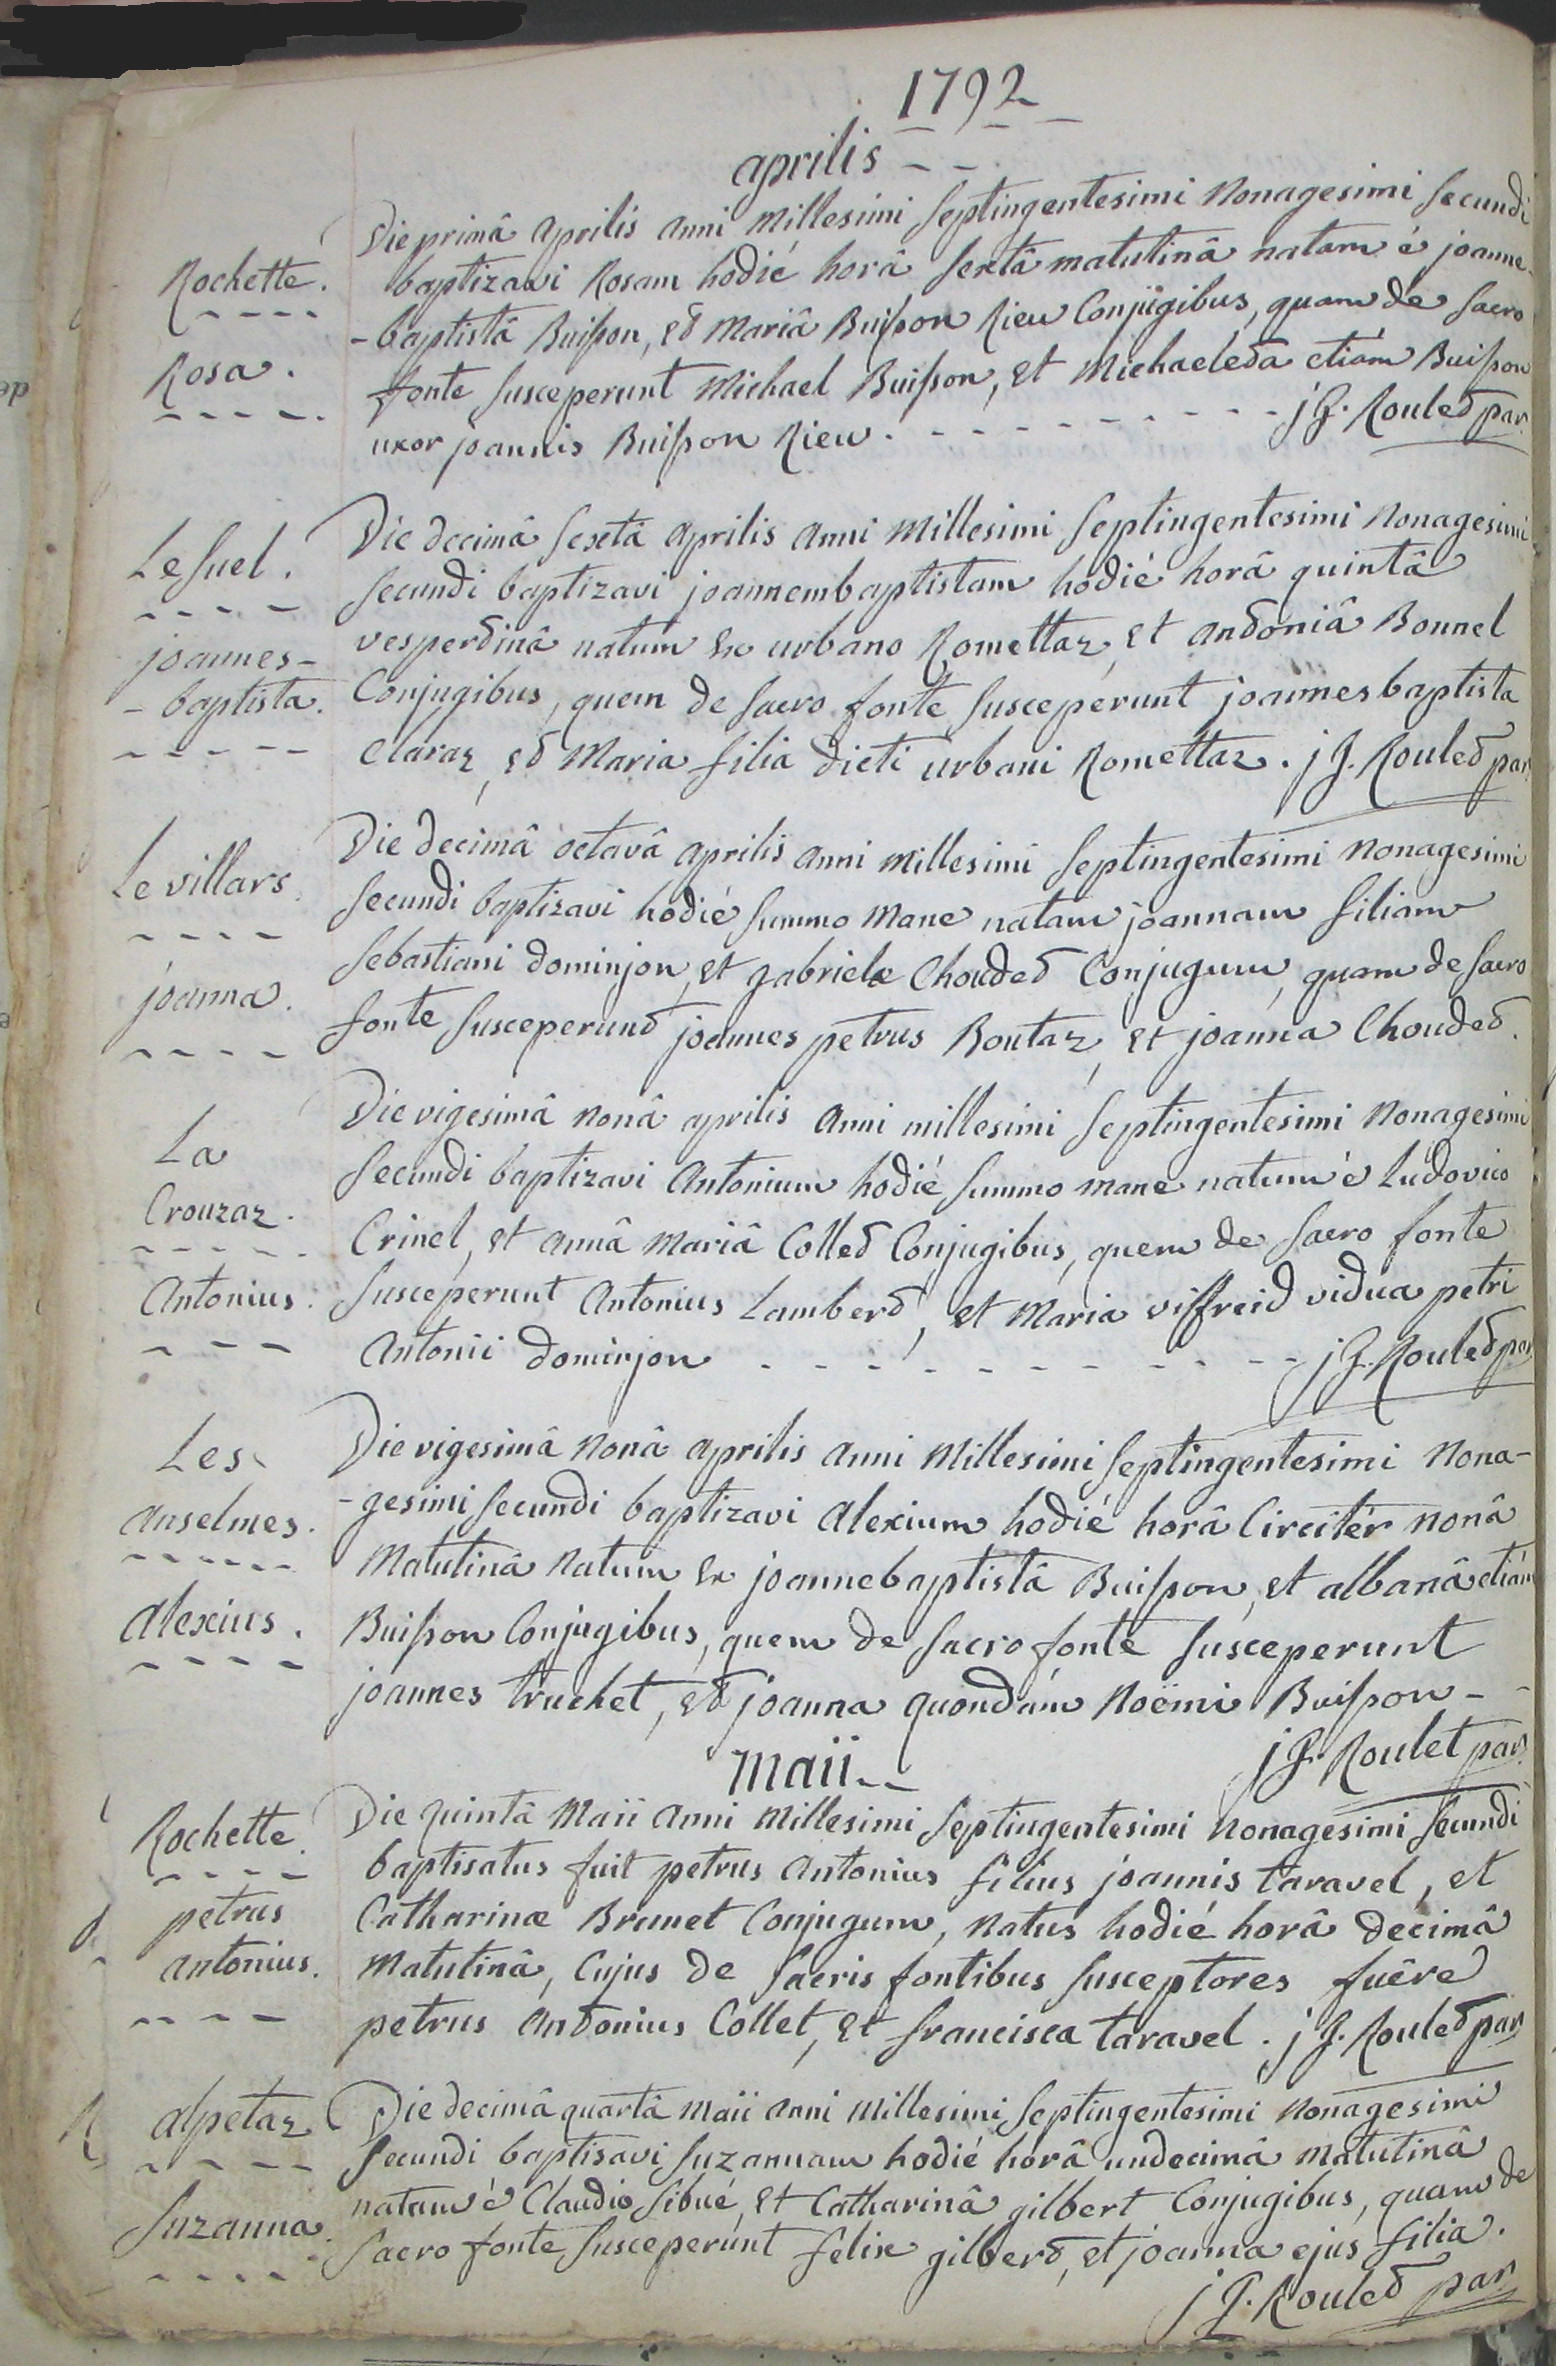 1792
aprilis
Rochette.
Rosa.
Die primâ aprilis anni millesimi septingentesimi nonagesimi secundi
baptizavi Rosam hodié horâ sextâ matutinâ natam é joanne-
-baptistâ Buisson, et Mariâ Buisson Rieu Conjugibus, quam de sacro
fonte susceperunt Michael Buisson, et Michaeleta etiám Buisson
uxor joannis Buisson Rieu. j J. Roulet par.
Le suel.
joannes-
-baptista.
Die decimâ sextâ aprilis anni millesimi septingentesimi nonagesimi
secundi baptizavi joannembaptistam hodié horâ quintâ
vespertinâ natum ex urbano Romettaz, et antoniâ Bonnel
Conjugibus, quem de sacro fonte susceperunt joannes baptista
Claraz, et Maria filia dicti urbani Romettaz. j J. Roulet par.
Le villars.
joanna.
Die decimâ octavâ aprilis anni millesimi septingentesimi nonagesimi
secundi baptizavi hodié summo mane natam joannam filiam
sebastiani dominjon, et gabrielæ Choudet Conjugum, quam de sacro
fonte susceperunt joannes petrus Boutaz, et joanna Choudet.
La
Crouzaz.
Antonius.
Die vigesimâ nonâ aprilis anni millesimi septingentesimi nonagesimi
secundi baptizavi Antonium hodié summo mane natum é Ludovico
Crinel, et annâ mariâ Collet Conjugibus, quem de sacro fonte
susceperunt Antonius Lambert, et Maria viffreid vidua petri
Antonii dominjon j J. Roulet par.
Les
anselmes.
Alexius.
Die vigesimâ nonâ aprilis anni millesimi septingentesimi nona-
-gesimi secundi baptizavi Alexium hodié horâ Circitér nonâ
Matutinâ natum ex joannebaptistâ Buisson, et albanâ etiám
Buisson Conjugibus, quem de sacro fonte susceperunt
joannes truchet, et joanna quondám Noëmi Buisson
j J. Roulet par.
Maii
Rochette.
petrus
antonius.
Die quintâ Maii anni Millesimi septingentesimi nonagesimi secundi
baptisatus fuit petrus antonius filius joannis taravel, et
Catharinæ Brunet Conjugum, natus hodié horâ decimâ
Matutinâ, Cujus de sacris fontibus susceptores fuêre
petrus antonius Collet, et francisca taravel. j J. Roulet par.
alpetaz
Suzanna.
Die decimâ quartâ Maii anni Millesimi septingentesimi nonagesimi
secundi baptisavi suzannam hodié horâ undecimâ matutinâ
natam é Claudio sibué, et Catharinâ gilbert Conjugibus, quam de
sacro fonte susceperunt felix gilbert, et joanna ejus filia.
j J. Roulet par.